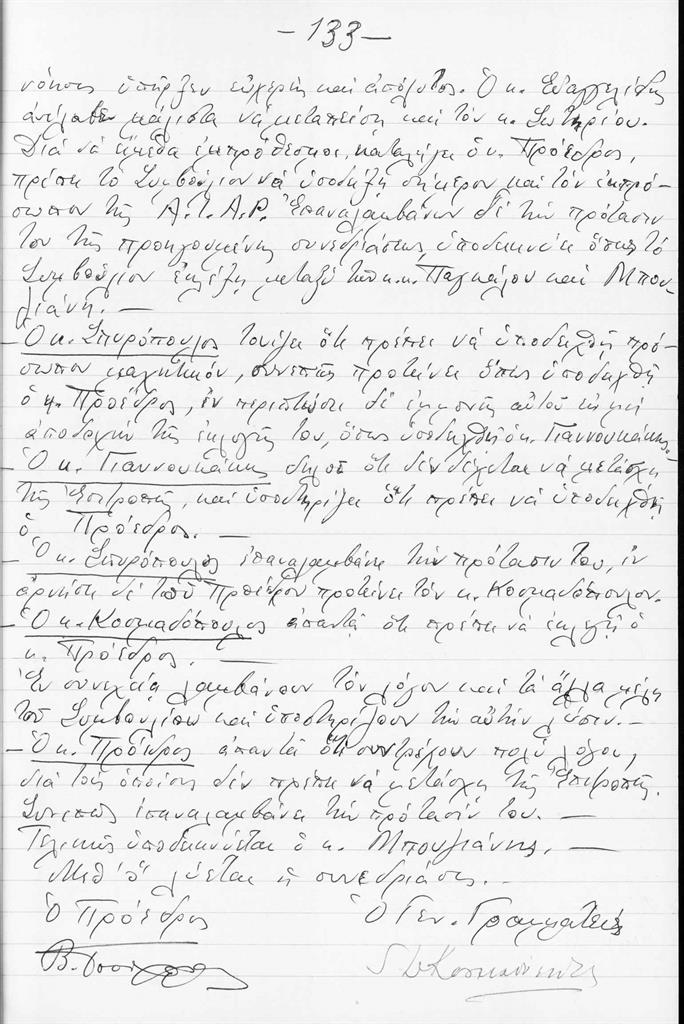 - 133 -
νόησις ὑπῆρξεν εὐχερής καί ἀπόλυτος. Ὁ κ. Εὐαγγελίδης
ἀνέλαβεν μάλιστα νά μεταπείσῃ καί τόν κ. Σωτηρίου.
Διά νά εἴμεθα ἐμπρόθεσμοι, καταλήγει ὁ κ. Πρόεδρος,
πρέπει τό Συμβούλιον νά ὑποδείξῃ σήμερον καί τόν ἐκπρό-
σωπον τῆς Α.Τ.Α.Ρ. Ἐπαναλαμβάνων δέ τήν πρότασιν
του τῆς προηγουμένης συνεδριάσεως, ὑποδεικνύει ὅπως τό
Συμβούλιον ἐκλέξῃ μεταξύ τῶν κ.κ. Παγκάλου καί Μπου-
λιάνη. —
- Ὁ κ. Σπυρόπουλος τονίζει ὅτι πρέπει νά ὑποδειχθῇ πρό-
σωπον μαχητικόν, συνεπῶς προτείνει ὅπως ὑποδειχθῇ
ὁ κ. Πρόεδρος, ἐν περιπτώσει δέ ἐμμονῆς αὐτοῦ εἰς μή
ἀποδοχήν τῆς ἐκλογῆς του, ὅπως ὑποδειχθῇ ὁ κ. Γιαννουκάκης.-
- Ὁ κ. Γιαννουκάκης δηλοῖ ὅτι δέν δέχεται νά μετάσχῃ
τῆς Ἐπιτροπῆς, καί ὑποστηρίζει ὅτι πρέπει νά ὑποδειχθῇ
ὁ Πρόεδρος. —
- Ὁ κ. Σπυρόπουλος ἐπαναλαμβάνει τήν πρότασιν του, ἐν
ἀρνήσει δέ τοῦ Προέδρου προτείνει τόν κ. Κοσμαδόπουλον.
- Ὁ κ. Κοσμαδόπουλος ἀπαντᾷ ὅτι πρέπει νά ἐκλεγῇ ὁ
κ. Πρόεδρος. —
Ἐν συνεχείᾳ λαμβάνουν τόν λόγον καί τά ἄλλα μέλη
τοῦ Συμβουλίου καί ὑποστηρίζουν τήν αὐτήν λύσιν. —
- Ὁ κ. Πρόεδρος ἀπαντᾷ ὅτι συντρέχουν πολλοί λόγοι,
διά τούς ὁποίους δέν πρέπει νά μετάσχῃ τῆς Ἐπιτροπῆς.
Συνεπῶς ἐπαναλαμβάνει τήν πρότασίν του. —
Τελικῶς ὑποδεικνύεται ὁ κ. Μπουλιάνης. —
Μεθ' ὅ λύεται ἡ συνεδρίασις. -
Ὁ Πρόεδρος Ὁ Γεν. Γραμματεύς